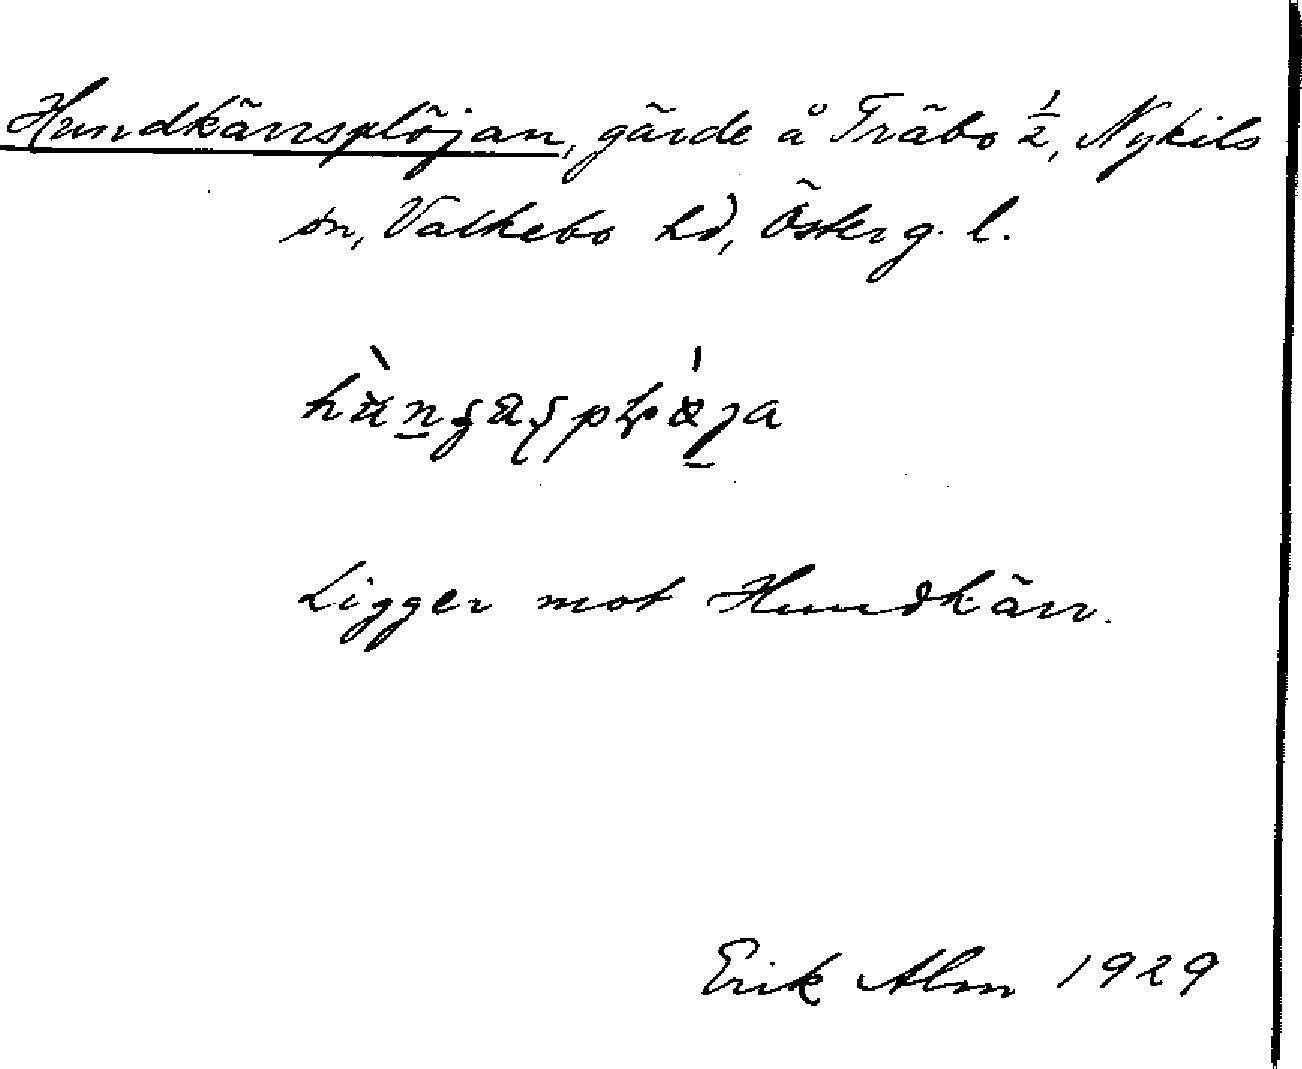 Hundkärrsplöjan, gärde å Träbo 1/2, Nykils
sn, Valkebo hd, Österg. l.
Ligger mot Hundkärr.
Erik Alm 1929